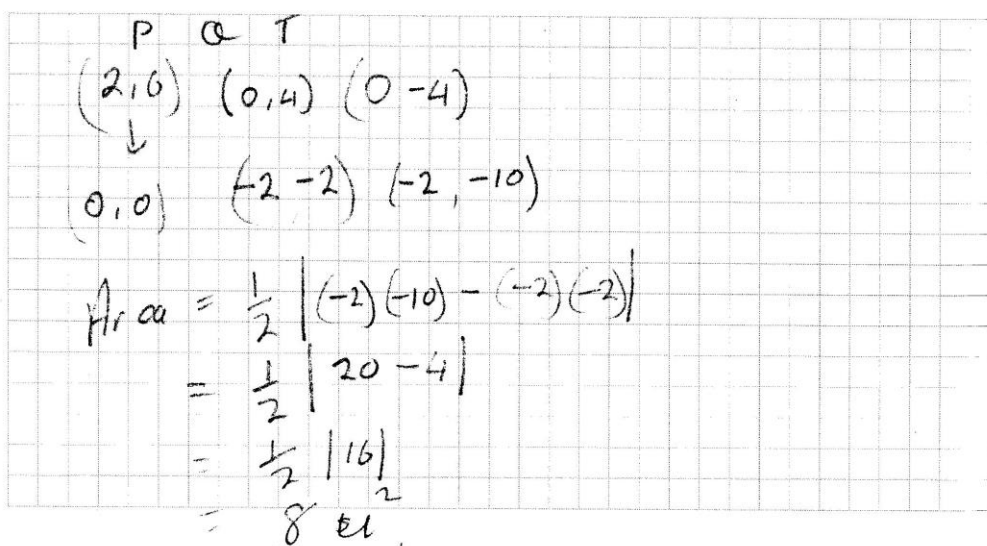 P Q T
(2,6) (0,4) (0 -4)
↓
(0,0) (-2 -2) (-2, -10)
Area = 1/2 |(-2)(-10) - (-2)(-2)|
= 1/2 |20 - 4|
= 1/2 |16|
= 8 u²